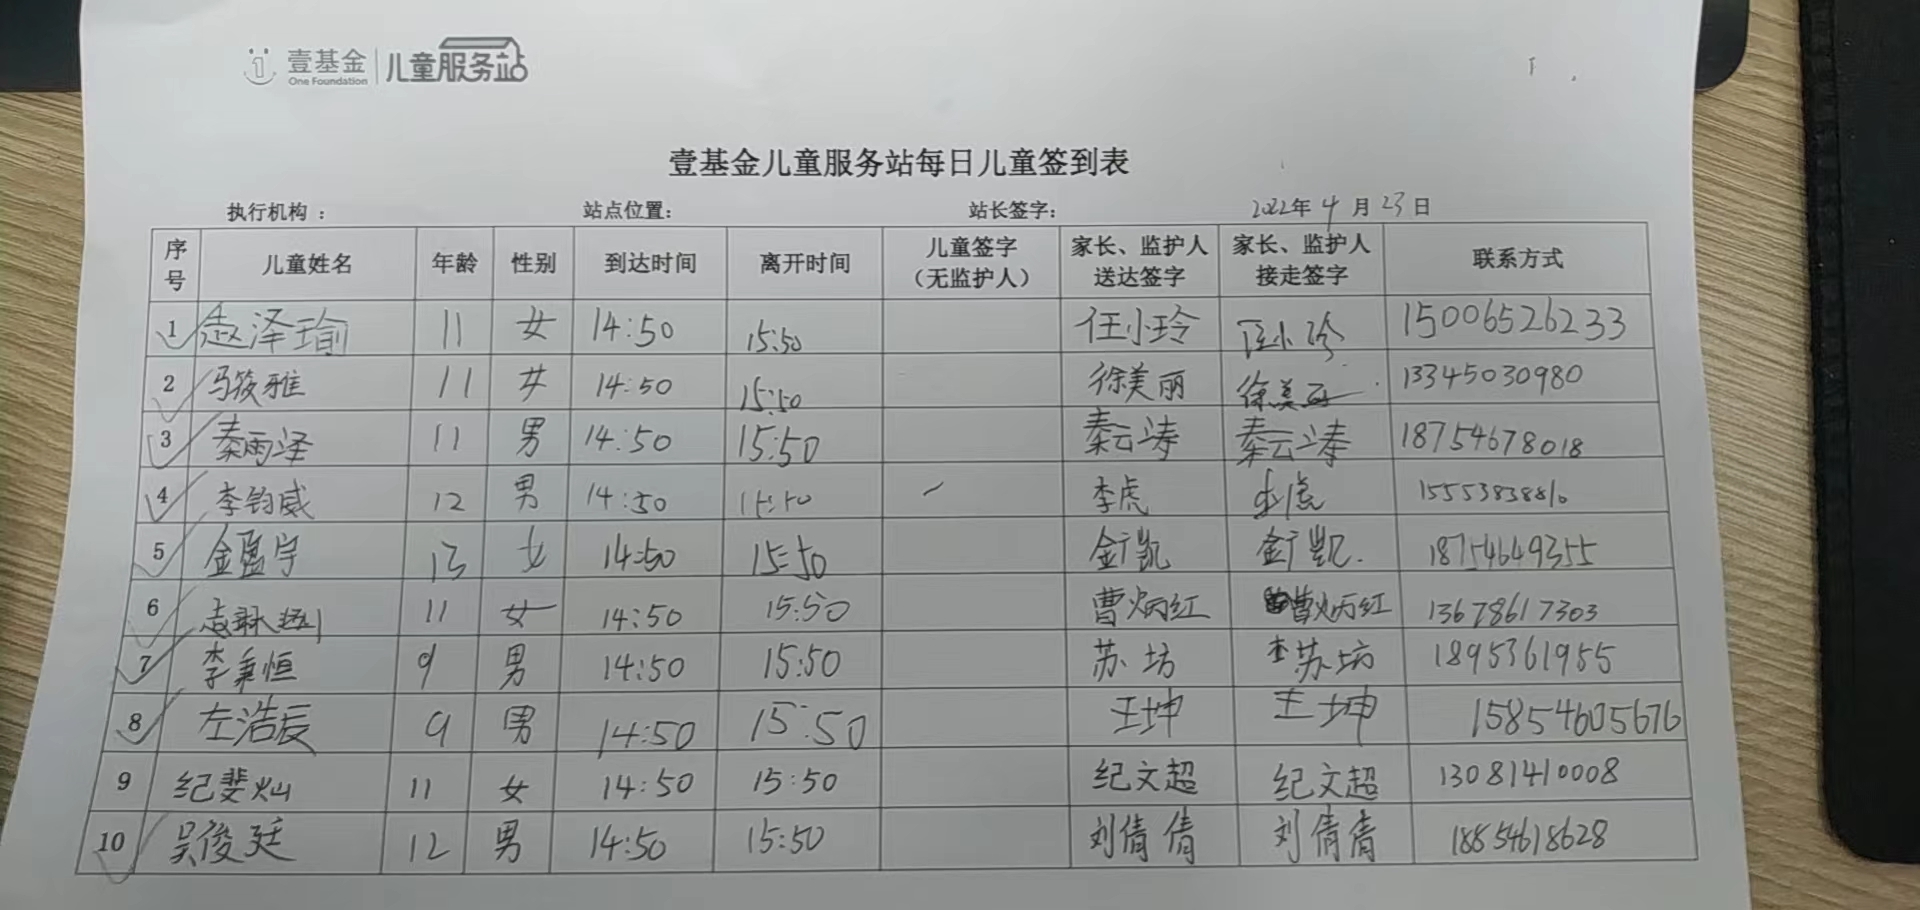 壹基金 儿童服务站
One Foundation
壹基金儿童服务站每日儿童签到表
执行机构： 站点位置： 站长签字： 2022年 4 月 23 日
序号 儿童姓名 年龄 性别 到达时间 离开时间 儿童签字（无监护人） 家长、监护人送达签字 家长、监护人接走签字 联系方式
1 赵泽瑜 11 女 14:50 15:50 任小玲 任小玲 15006526233
2 马筱雅 11 女 14:50 15:50 徐美丽 徐美丽 13345030980
3 秦雨泽 11 男 14:50 15:50 秦云涛 秦云涛 18754678018
4 李钧威 12 男 14:50 15:50 李虎 李虎
5 金盈宇 13 女 14:50 15:50 金广凯 金广凯. 18754649355
6 11 女 14:50 15:50 曹炳红 曹炳红 13678617303
7 李秉恒 9 男 14:50 15:50 苏坊 苏坊 1895361955
8 左浩辰 9 男 14:50 15:50 王坤 王坤 15854605676
9 纪斐灿 11 女 14:50 15:50 纪文超 纪文超 13081410008
10 吴俊廷 12 男 14:50 15:50 刘倩倩 刘倩倩 18854618628